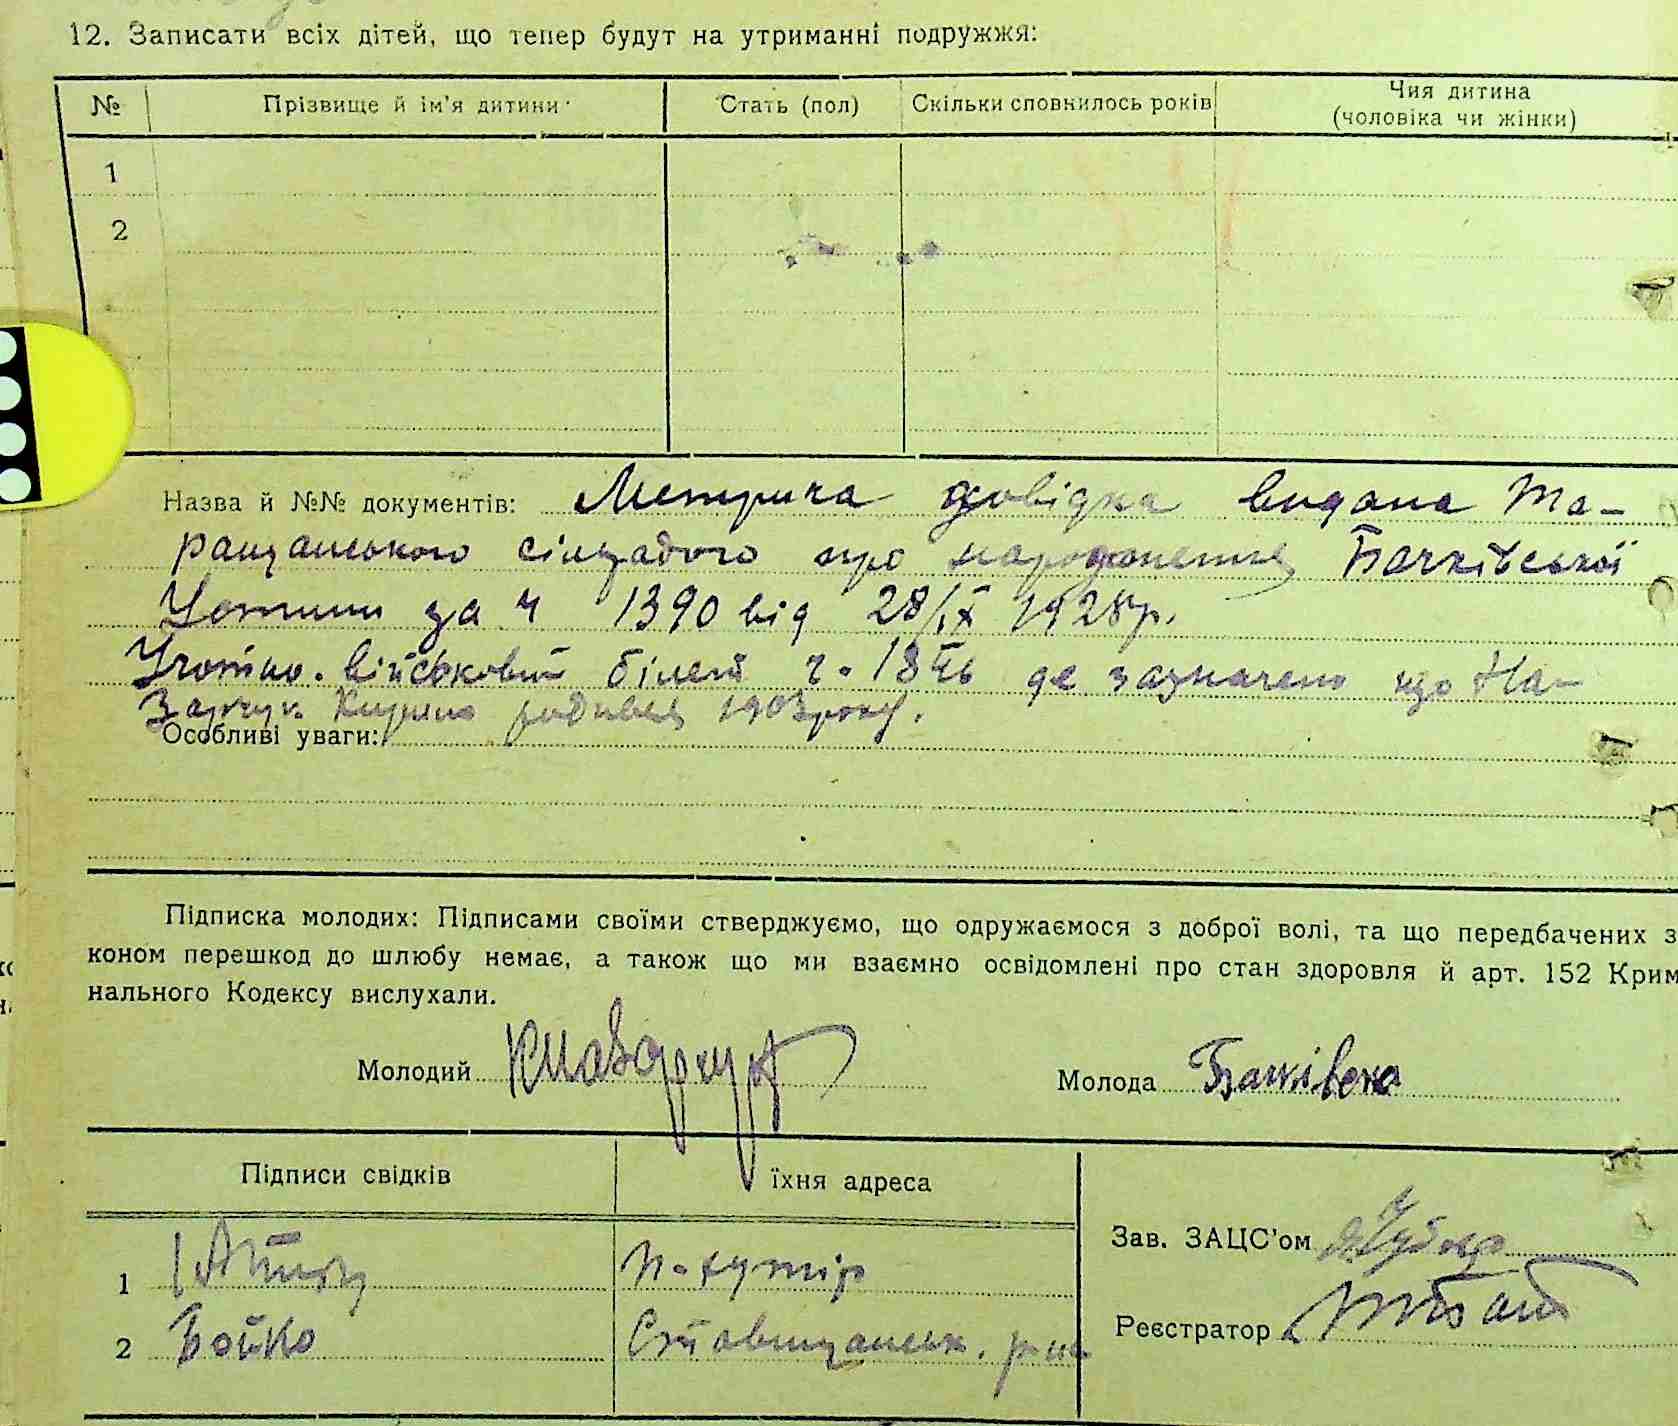 12. Записати всіх дітей, що тепер будут на утриманні подружжя:
№ Прізвище й ім'я дитини Стать (пол) Скільки сповнилось років Чия дитина
(чоловіка чи жінки)
1
2
Назва й №№ документів: Метрика довідка видана Та-
ращанського про народження Бачківської
за ч 1390 від 28/ІХ 1928р.
військовий білет ч. 18 де зазначено що На-
зарчук Кирило родився 1903 року.
Особливі уваги:
Підписка молодих: Підписами своїми стверджуємо, що одружаємося з доброї волі, та що передбачених з
коном перешкод до шлюбу немає, а також що ми взаємно освідомлені про стан здоровля й арт. 152 Крим
нального Кодексу вислухали.
Молодий КНазарчук Молода Бачківска
Підписи свідків їхня адреса
Зав. ЗАЦС'ом
1 П-хутір
Реєстратор
2 Бойко Ставищанськ. р-ну